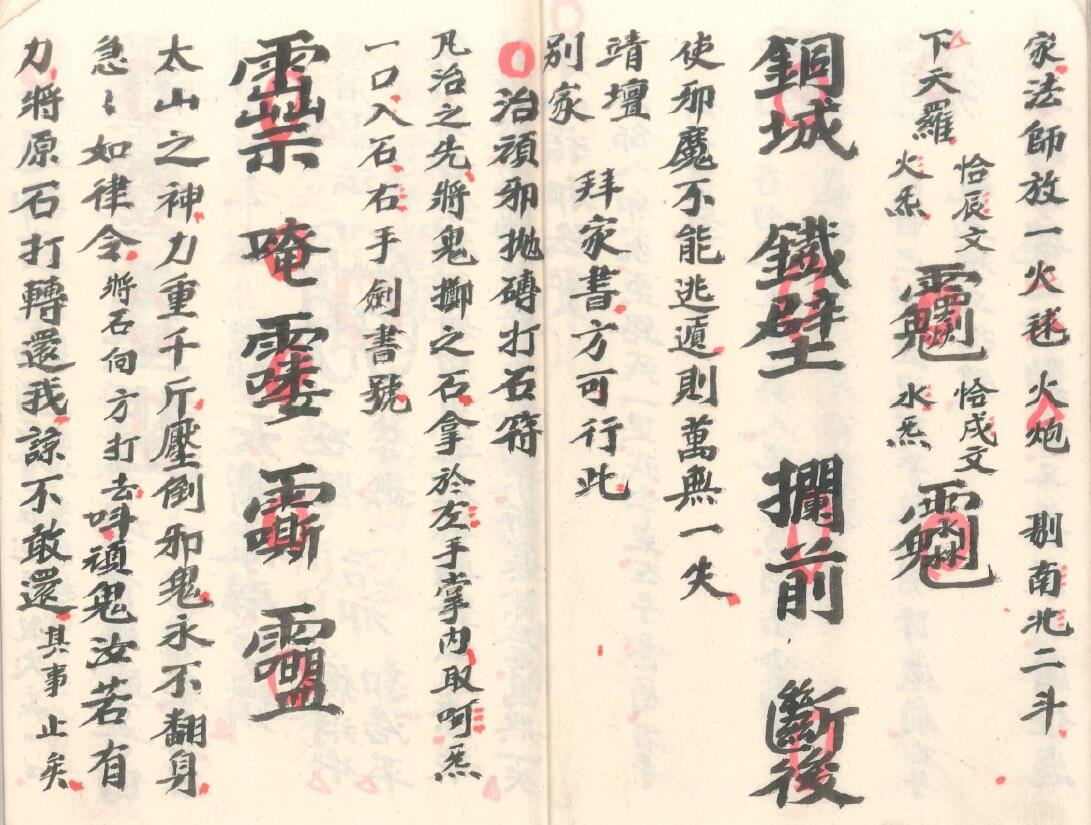 家法師放一火毬 火炮 剔南北二斗
下天羅
火炁 恰辰文
水炁 恰戌文
銅城 鐵壁 攔前 斷後
使邪魔不能逃遁則萬無一失
靖壇 拜家書方可行此
別家
治頑邪拋磚打石符
凡治之先將鬼擲之石拿於左手掌內取呵炁
一口入石右手劍書號
唵
太山之神力重千斤壓倒邪鬼永不翻身
急〻如律令將石向方打去呌頑鬼汝若有
力將原石打轉還我諒不敢還其事止矣